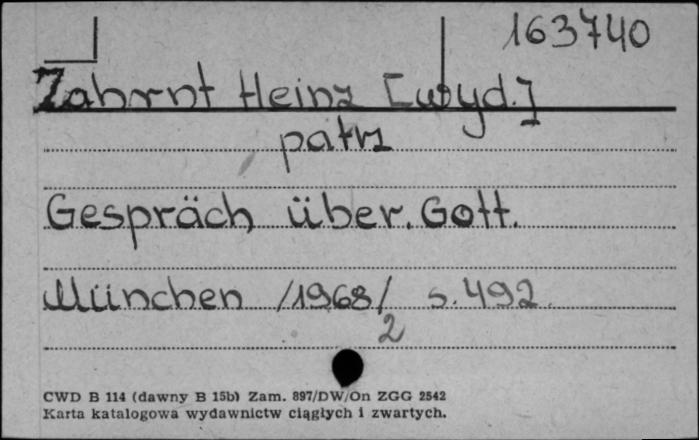 163740
Zahrnt Heinz [wyd.]
patrz
Gespräch über. Gott.
München /1968/ s. 492
2
CWD B 114 (dawny B 15b) Zam. 897/DW/On ZGG 2542
Karta katalogowa wydawnictw ciągłych i zwartych.